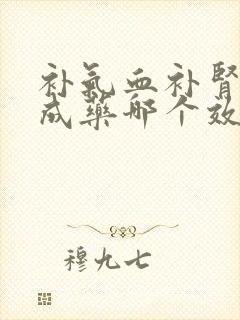 补氣血补腎
成藥哪个效
穆九七